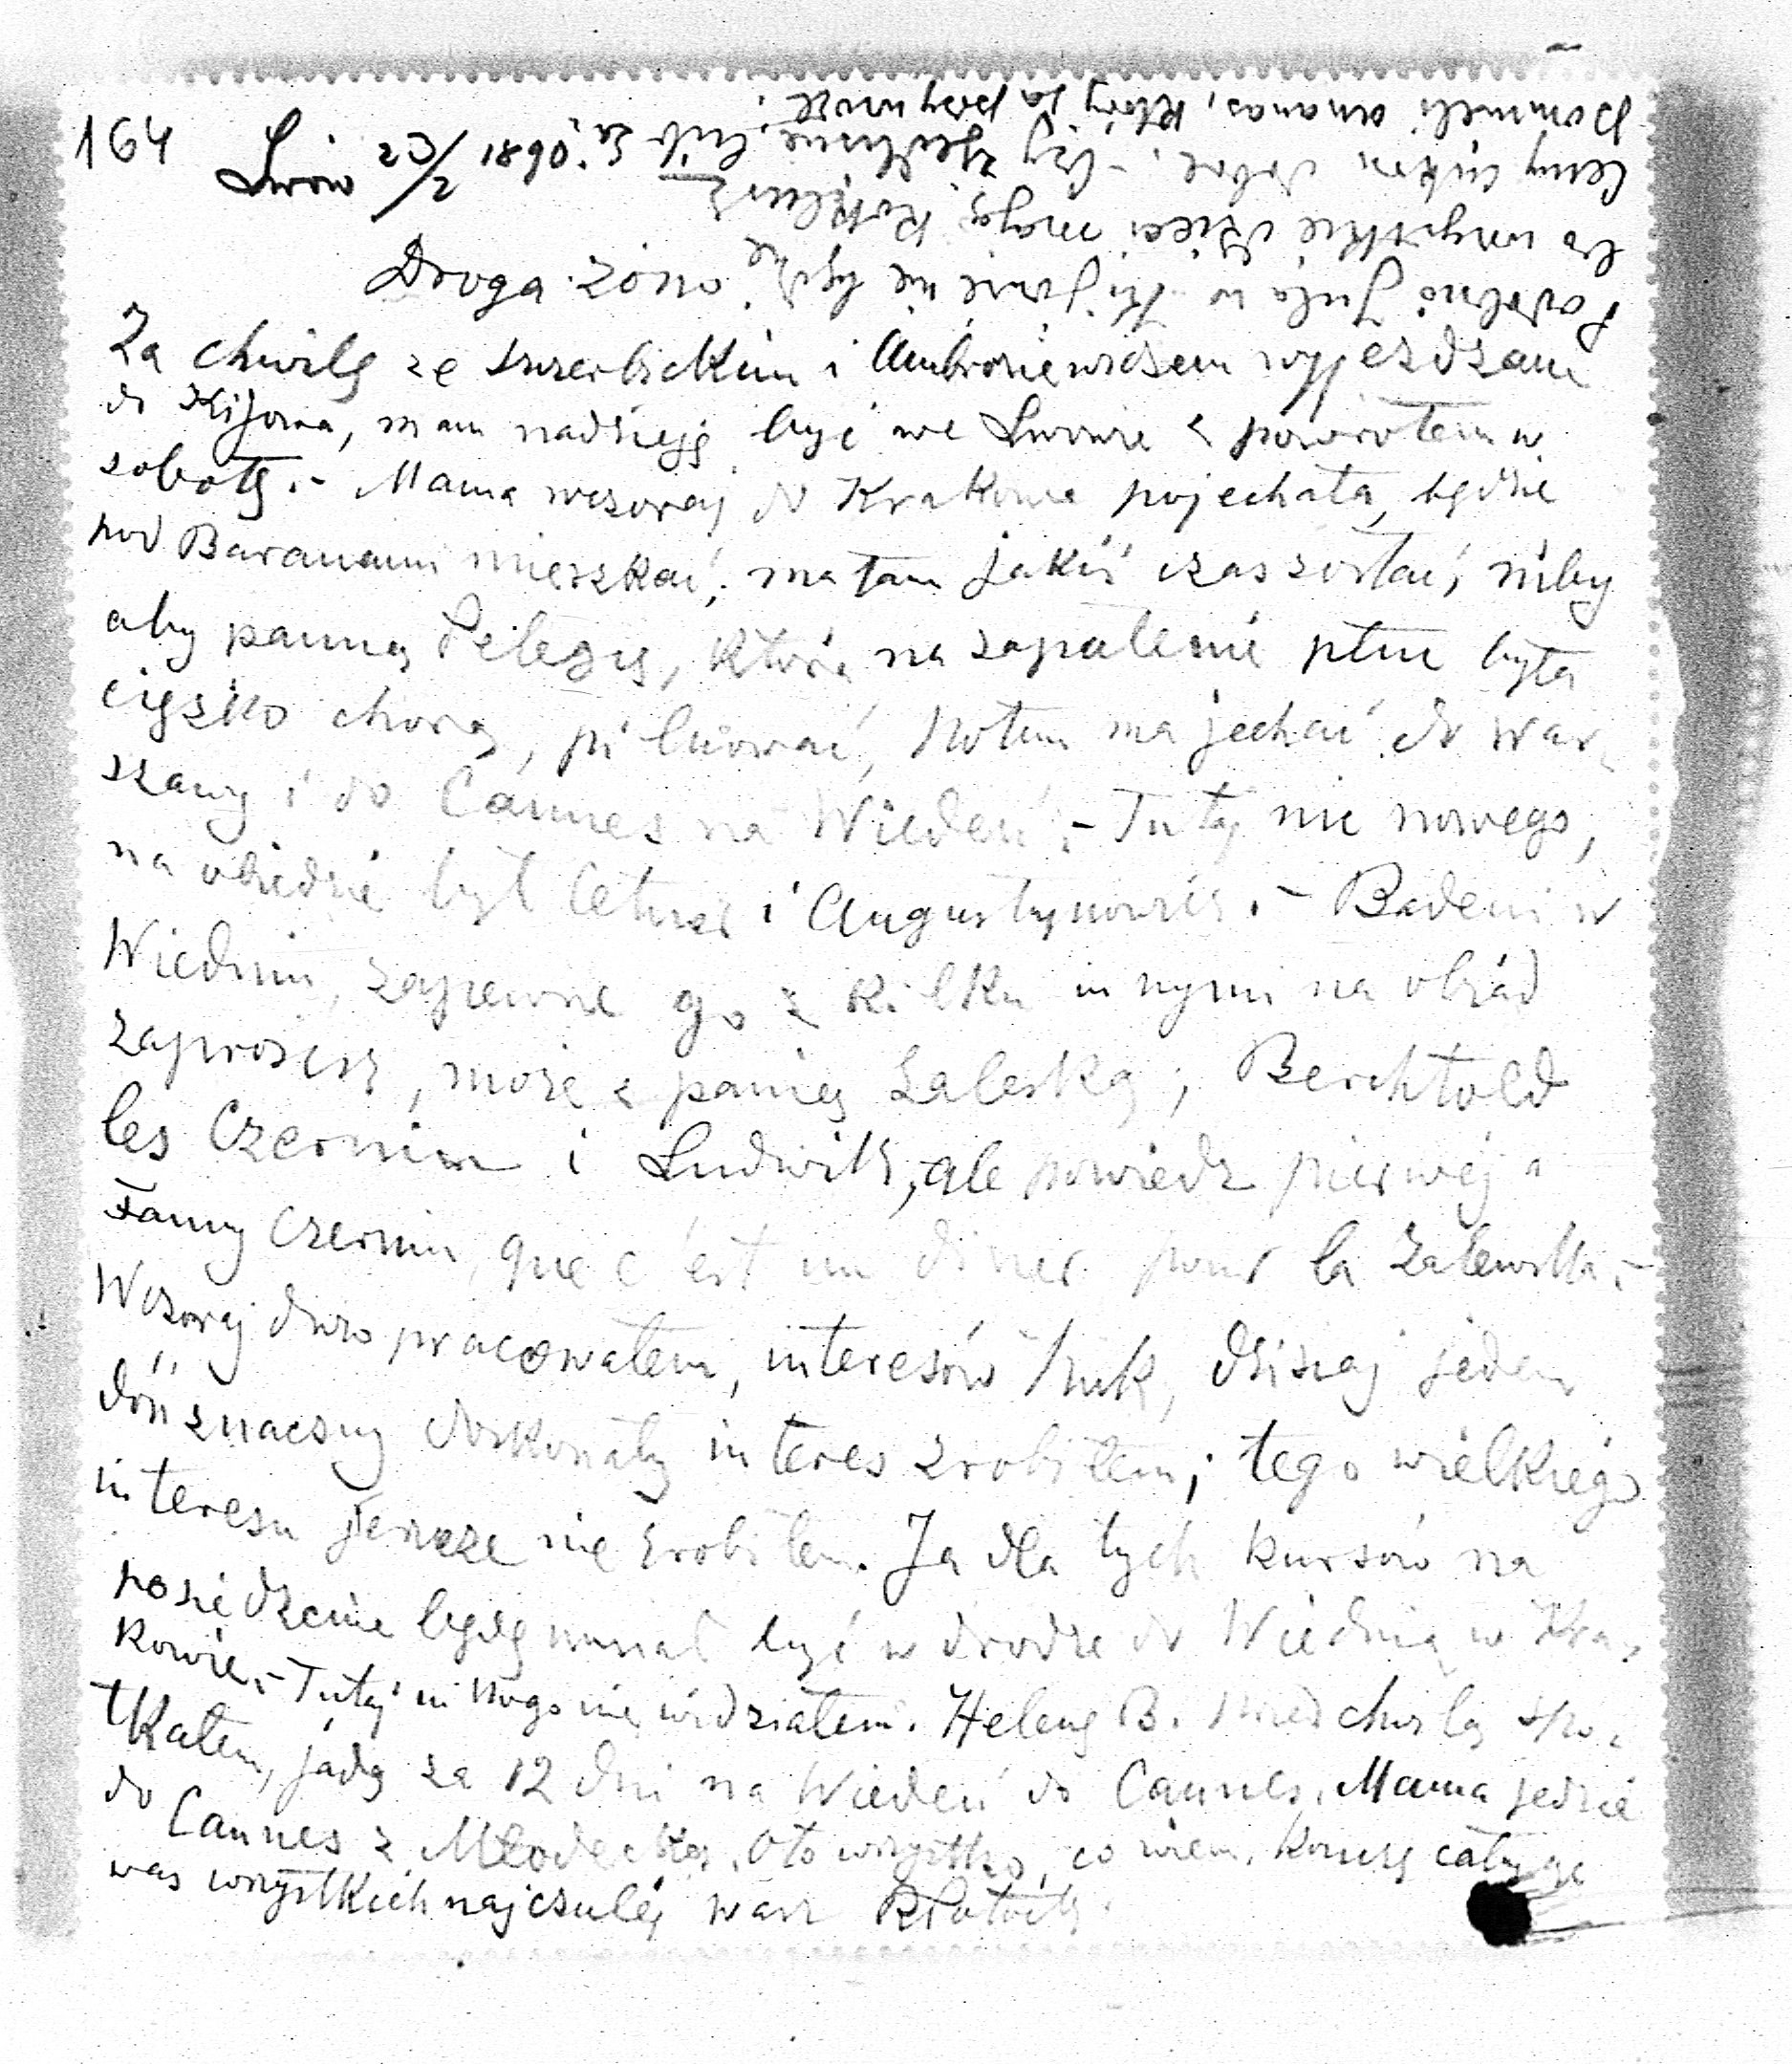 164
Lwów 23/2 1890.
Droga żono!
Za chwilę ze Szczerbickim i Ambroziewiczem wyjeżdżam
do Kijowa, mam nadzieję być we Lwowie z powrotem w
sobotę.- Mama wczoraj do Krakowa pojechała, będzie
pod Baranami mieszkać; ma tam jakiś czas zostać, niby
aby pannę Pelegię, która na zapalenie płuc była
ciężko chorą, pilnować, potem ma jechać do War-
szawy i do Cannes na Wiedeń.- Tutaj nic nowego,
na obiedzie był Cetner i Augustynowicz.- Badeni w
Wiedniu, zapewne go z kilku innymi na obiad
zaprosisz, może z panią Zaleską; Berchtold
les Czernin i Ludwik, ale powiedz pierwej
Fanny Czernin, que c'est un diner pour la Zalewska.-
Wczoraj dużo pracowałem, interesów huk, dzisiaj jeden
dość znaczny doskonały interes zrobiłem; tego wielkiego
interesu jeszcze nie zrobiłem. Ja dla tych kursów na
posiedzenie będę musiał być w drodze do Wiednia w Kra-
kowie.- Tutaj nikogo nie widziałem. Helenę B. przed chwilą spo-
tkałem, jadą za 12 dni na Wiedeń do Cannes, Mama jedzie
do Cannes z Młodecką. Oto wszystko, co wiem, kończę całując
was wszystkich najczulej wasz
Podobno Jula w Kijowie nie będzie
bo wszystkie dzieci mają koklusz
Ceny cukru dobre.- Czy
ananas, który ja przywiozł.